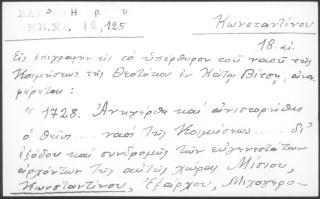 ΗΠ.ΧΡ. 12, 125
Κωνσταντίνου
18. αἰ.
Εἰς ἐπιγραφὴν εἰς τὸ ὑπέρθυρον τοῦ ναοῦ τῆς
Κοιμήσεως τῆς Θεοτόκου ἐν Κάτω Βίτσῃ, ἀνα-
φέρεται:
"1728. Ἀνηγέρθη καὶ ἀνιστορήθη
ὁ θεῖος ... ναὸς τῆς Κοιμήσεως .... δι'
ἐξόδου καὶ συνδρομῆς τῶν εὐγενεστάτων
ἀρχόντων τῆς αὐτῆς χώρας Μίσιου,
Κωνσταντίνου, Ἐξάρχου, Μιχογερο-